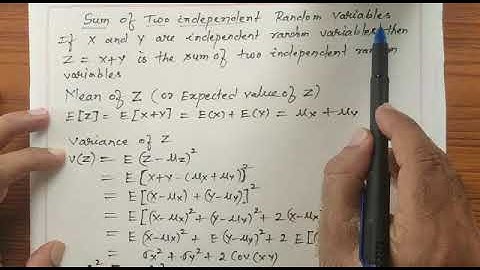 Sum of Two independent Random Variables
If X and Y are independent random variables then
Z = X+Y is the sum of two independent random
variables
Mean of Z (or Expected value of Z)
E[Z] = E[X+Y] = E(X) + E(Y) = μx + μy
Variance of Z
V(Z) = E(Z-μz)²
= E[X+Y - (μx+μy)]²
= E[(X-μx) + (Y-μy)]²
= E[(X-μx)² + (Y-μy)² + 2(X-μx
= E(X-μx)² + E(Y-μy)² + 2E[(
= σx² + σy² + 2Cov(XY)